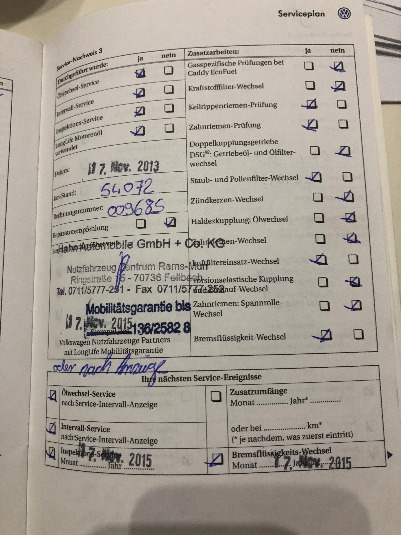 Serviceplan
Service-Nachweis 3
Durchgeführt wurde: ja nein
Ölwechsel-Service
Intervall-Service
Inspektions-Service
LongLife Motorenöl
verwendet
Datum: 17. Nov. 2013
km-Stand: 54072
Rechnungsnummer: 009685
Hahn Automobile GmbH + Co. KG
Nutzfahrzeug Zentrum Rems-Murr
70736 Fellbach
Tel. 0711/5777-231 - Fax 0711/5777-252
Mobilitätsgarantie bis
17. Nov. 2015 136/2582 8
Volkswagen Nutzfahrzeuge Partners
mit LongLife Mobilitätsgarantie
oder nach Anzeige
Zusatzarbeiten: ja nein
Gasspezifische Prüfungen bei
Caddy EcoFuel
Kraftstofffilter-Wechsel
Keilrippenriemen-Prüfung
Zahnriemen-Prüfung
Doppelkupplungsgetriebe
DSG®: Getriebeöl- und Ölfilter-
wechsel
Staub- und Pollenfilter-Wechsel
Zündkerzen-Wechsel
Haldexkupplung: Ölwechsel
Zahnriemen-Wechsel
Luftfiltereinsatz-Wechsel
Torsionselastische Kupplung
Zahnriemen: Spannrolle-
Wechsel
Bremsflüssigkeit-Wechsel
Ihre nächsten Service-Ereignisse
Ölwechsel-Service
nach Service-Intervall-Anzeige
Intervall-Service
nach Service-Intervall-Anzeige
Inspektions-Service
Monat 17. Nov. 2015 Jahr
Zusatzumfänge
Monat .............. Jahr* ..............
oder bei .................... km*
(* je nachdem, was zuerst eintritt)
Bremsflüssigkeits-Wechsel
Monat 17. Nov. 2015